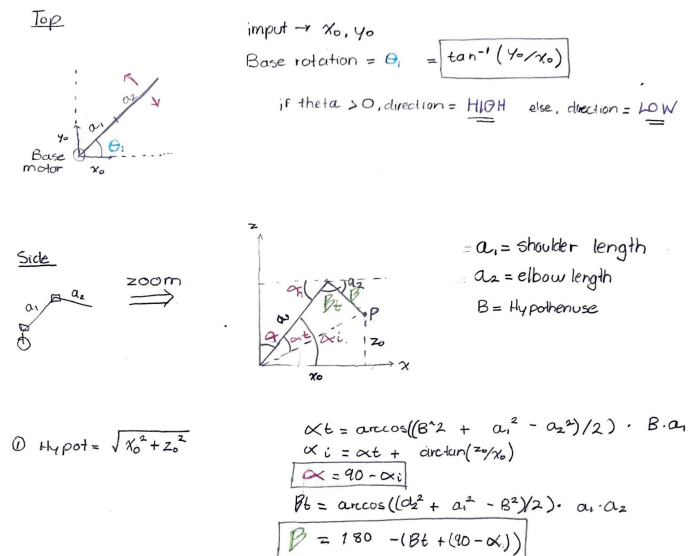 Top
imput → x₀, y₀
Base rotation = θ₁ = tan⁻¹ (y₀/x₀)
if theta > 0, direction = HIGH else, direction = LOW
a₂
a₁
y₀
θ₁
Base
motor
x₀
Side
a₁
a₂
zoom
z
a₂
Bt
β
P
a₁
α
αt
αi
z₀
x
x₀
a₁ = shoulder length
a₂ = elbow length
B = Hypothenuse
① Hypot = √x₀² + z₀²
αt = arccos((B^2 + a₁² - a₂²)/2) · B·a₁
αi = αt + arctan(z₀/x₀)
α = 90 - αi
Bt = arccos((a₂² + a₁² - B²)/2) · a₁·a₂
β = 180 -(Bt + (90 - α))